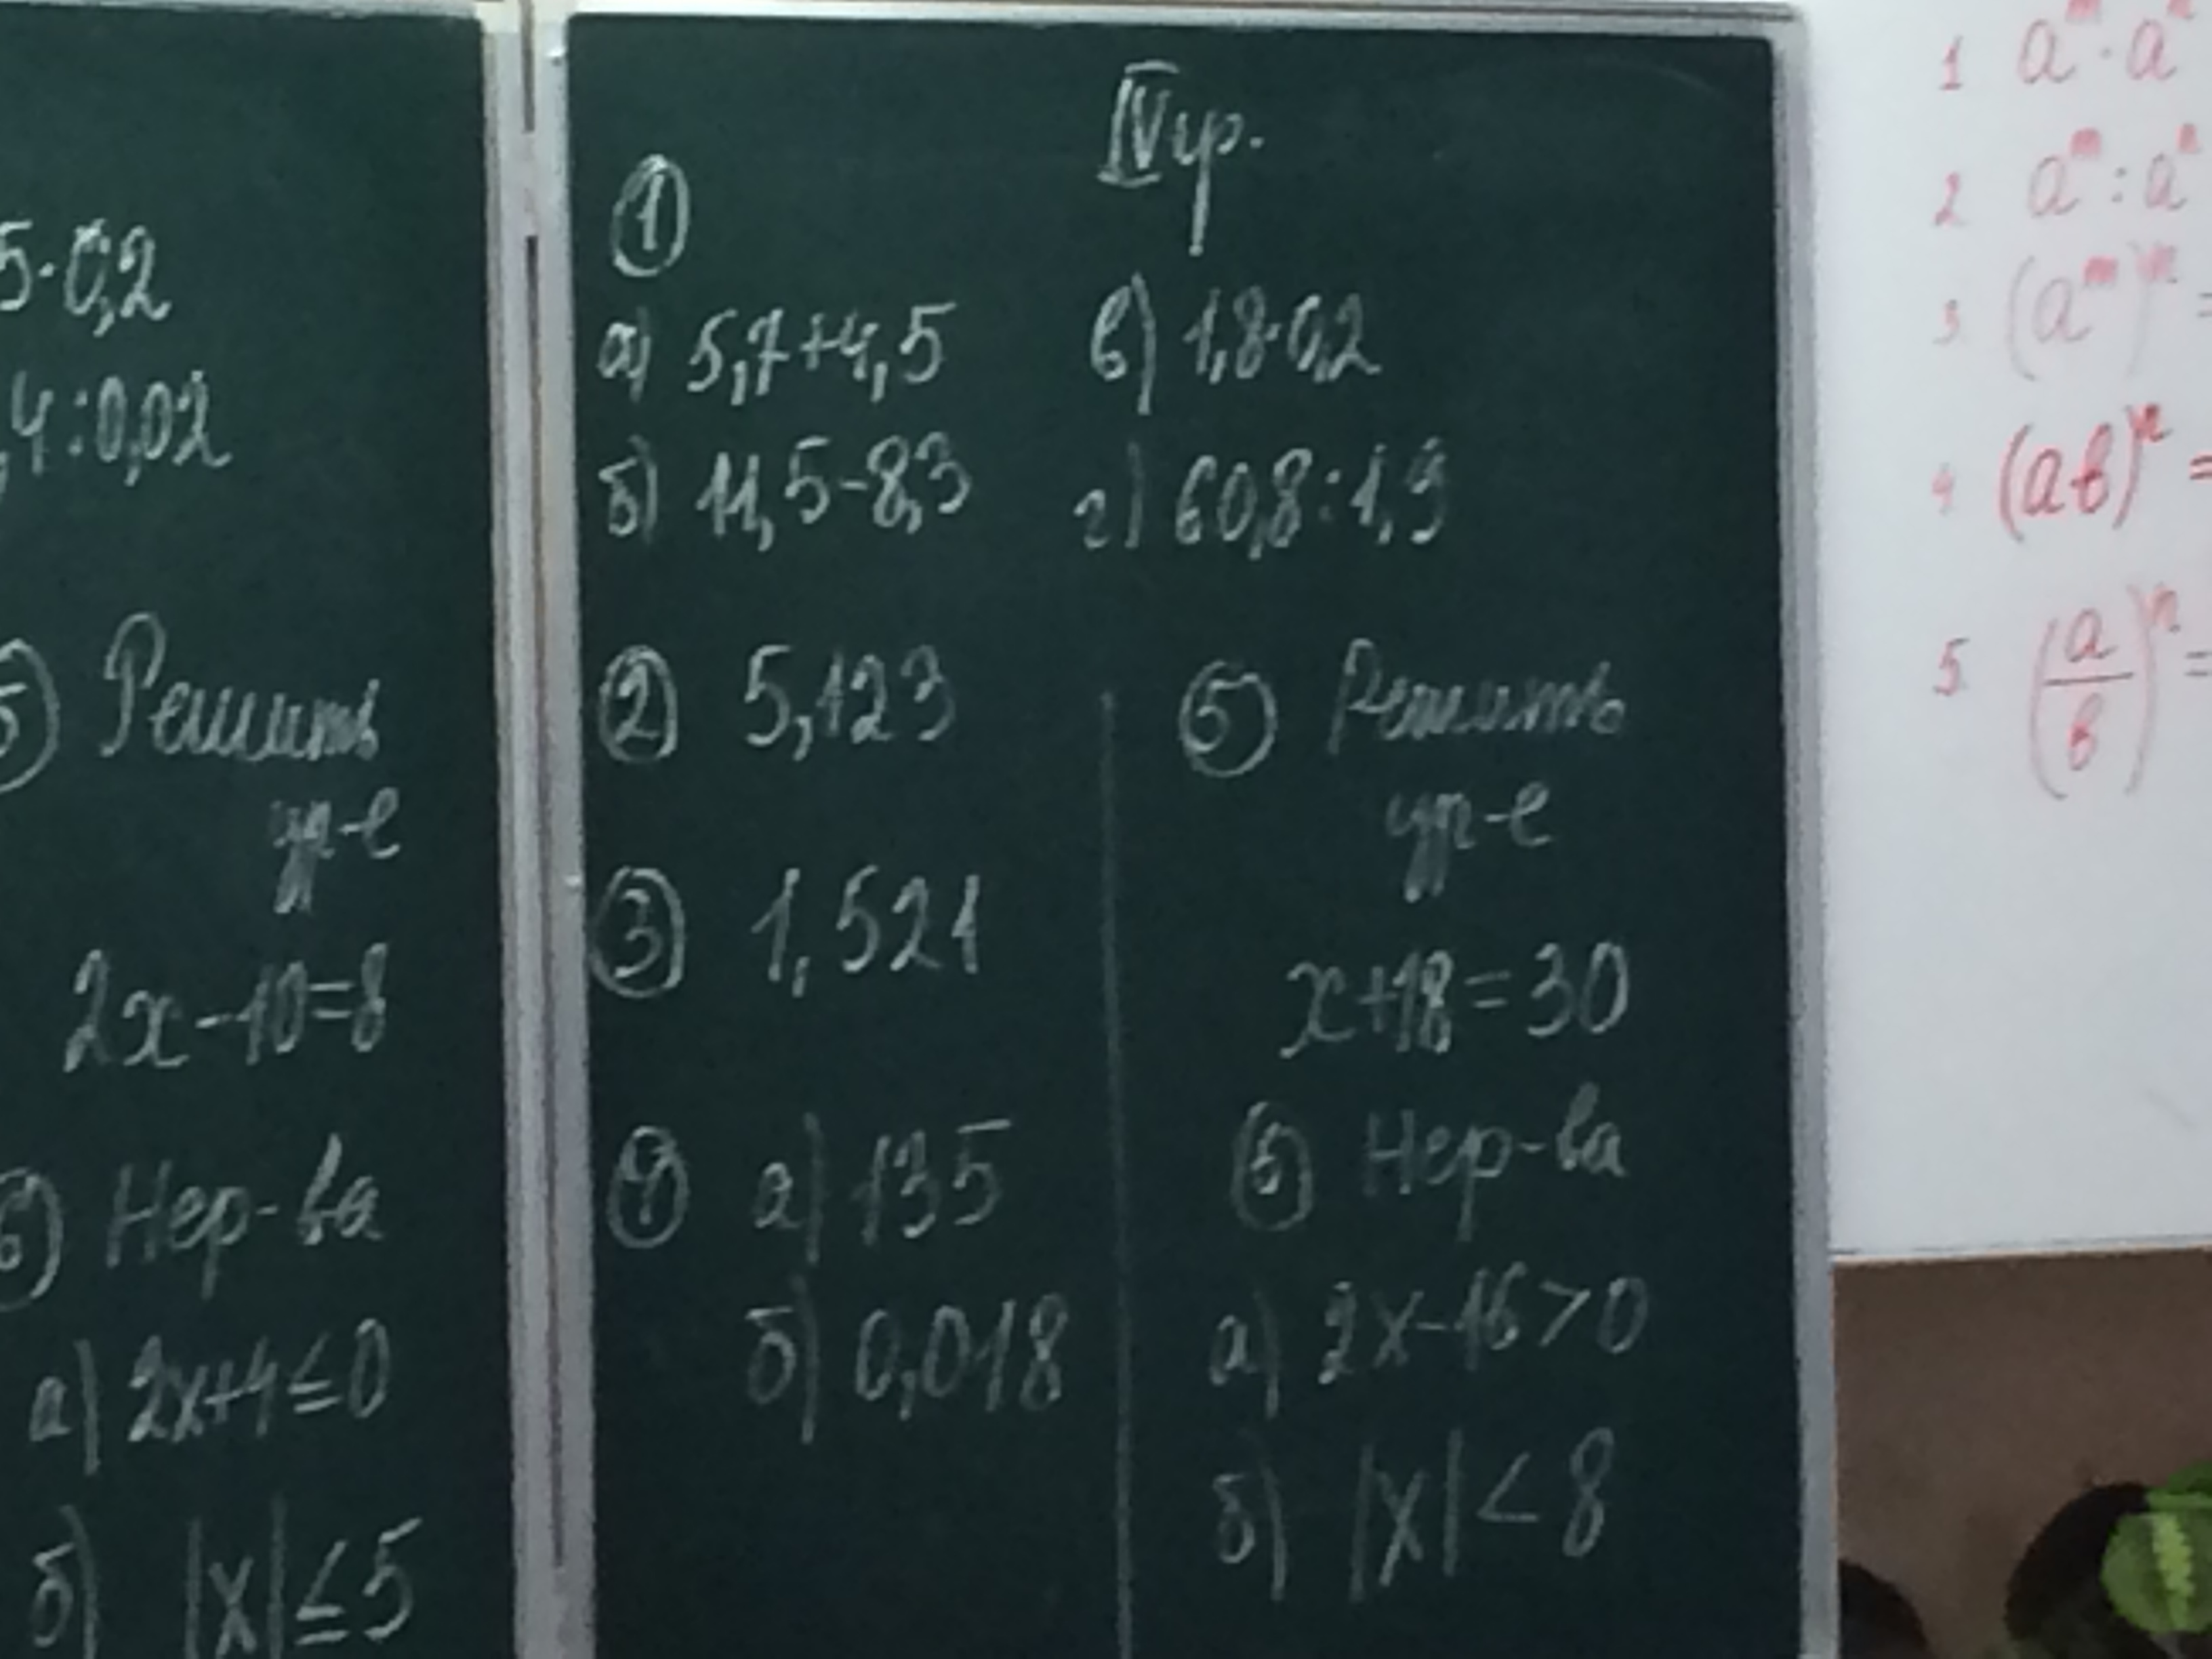 5·0,2
,4:0,02
5 Решить
ур-е
2x-10=8
6 Нер-ва
а) 2x+4≤0
б) |x|≤5
IV ур.
1
а) 5,7+4,5 в) 1,8·0,2
б) 11,5-8,3 г) 60,8:1,9
2 5,123
3 1,521
4 а) 135
б) 0,018
5 Решить
ур-е
x+18=30
6 Нер-ва
а) 2x-16>0
б) |x|<8
1 aᵐ·aⁿ
2 aᵐ:aⁿ
3 (aᵐ)ⁿ=
4 (ab)ⁿ=
5. (a/b)ⁿ=